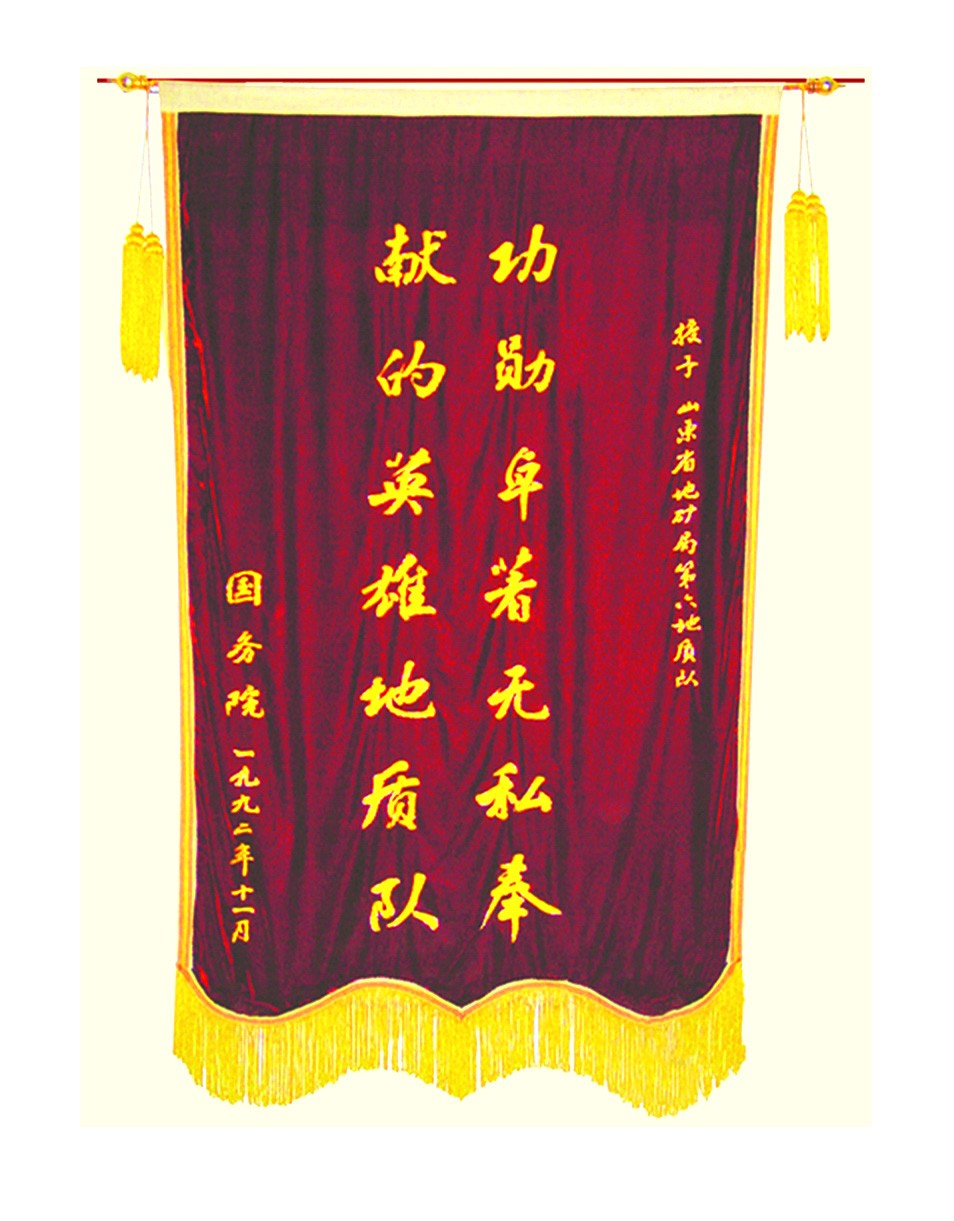 授予 山东省地矿局第六地质队
功勋卓著无私奉
献的英雄地质队
国务院 一九九二年十一月